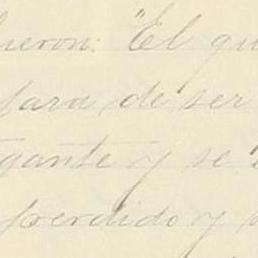 ieron: "El qu
para de ser
gante y se
perdido y s